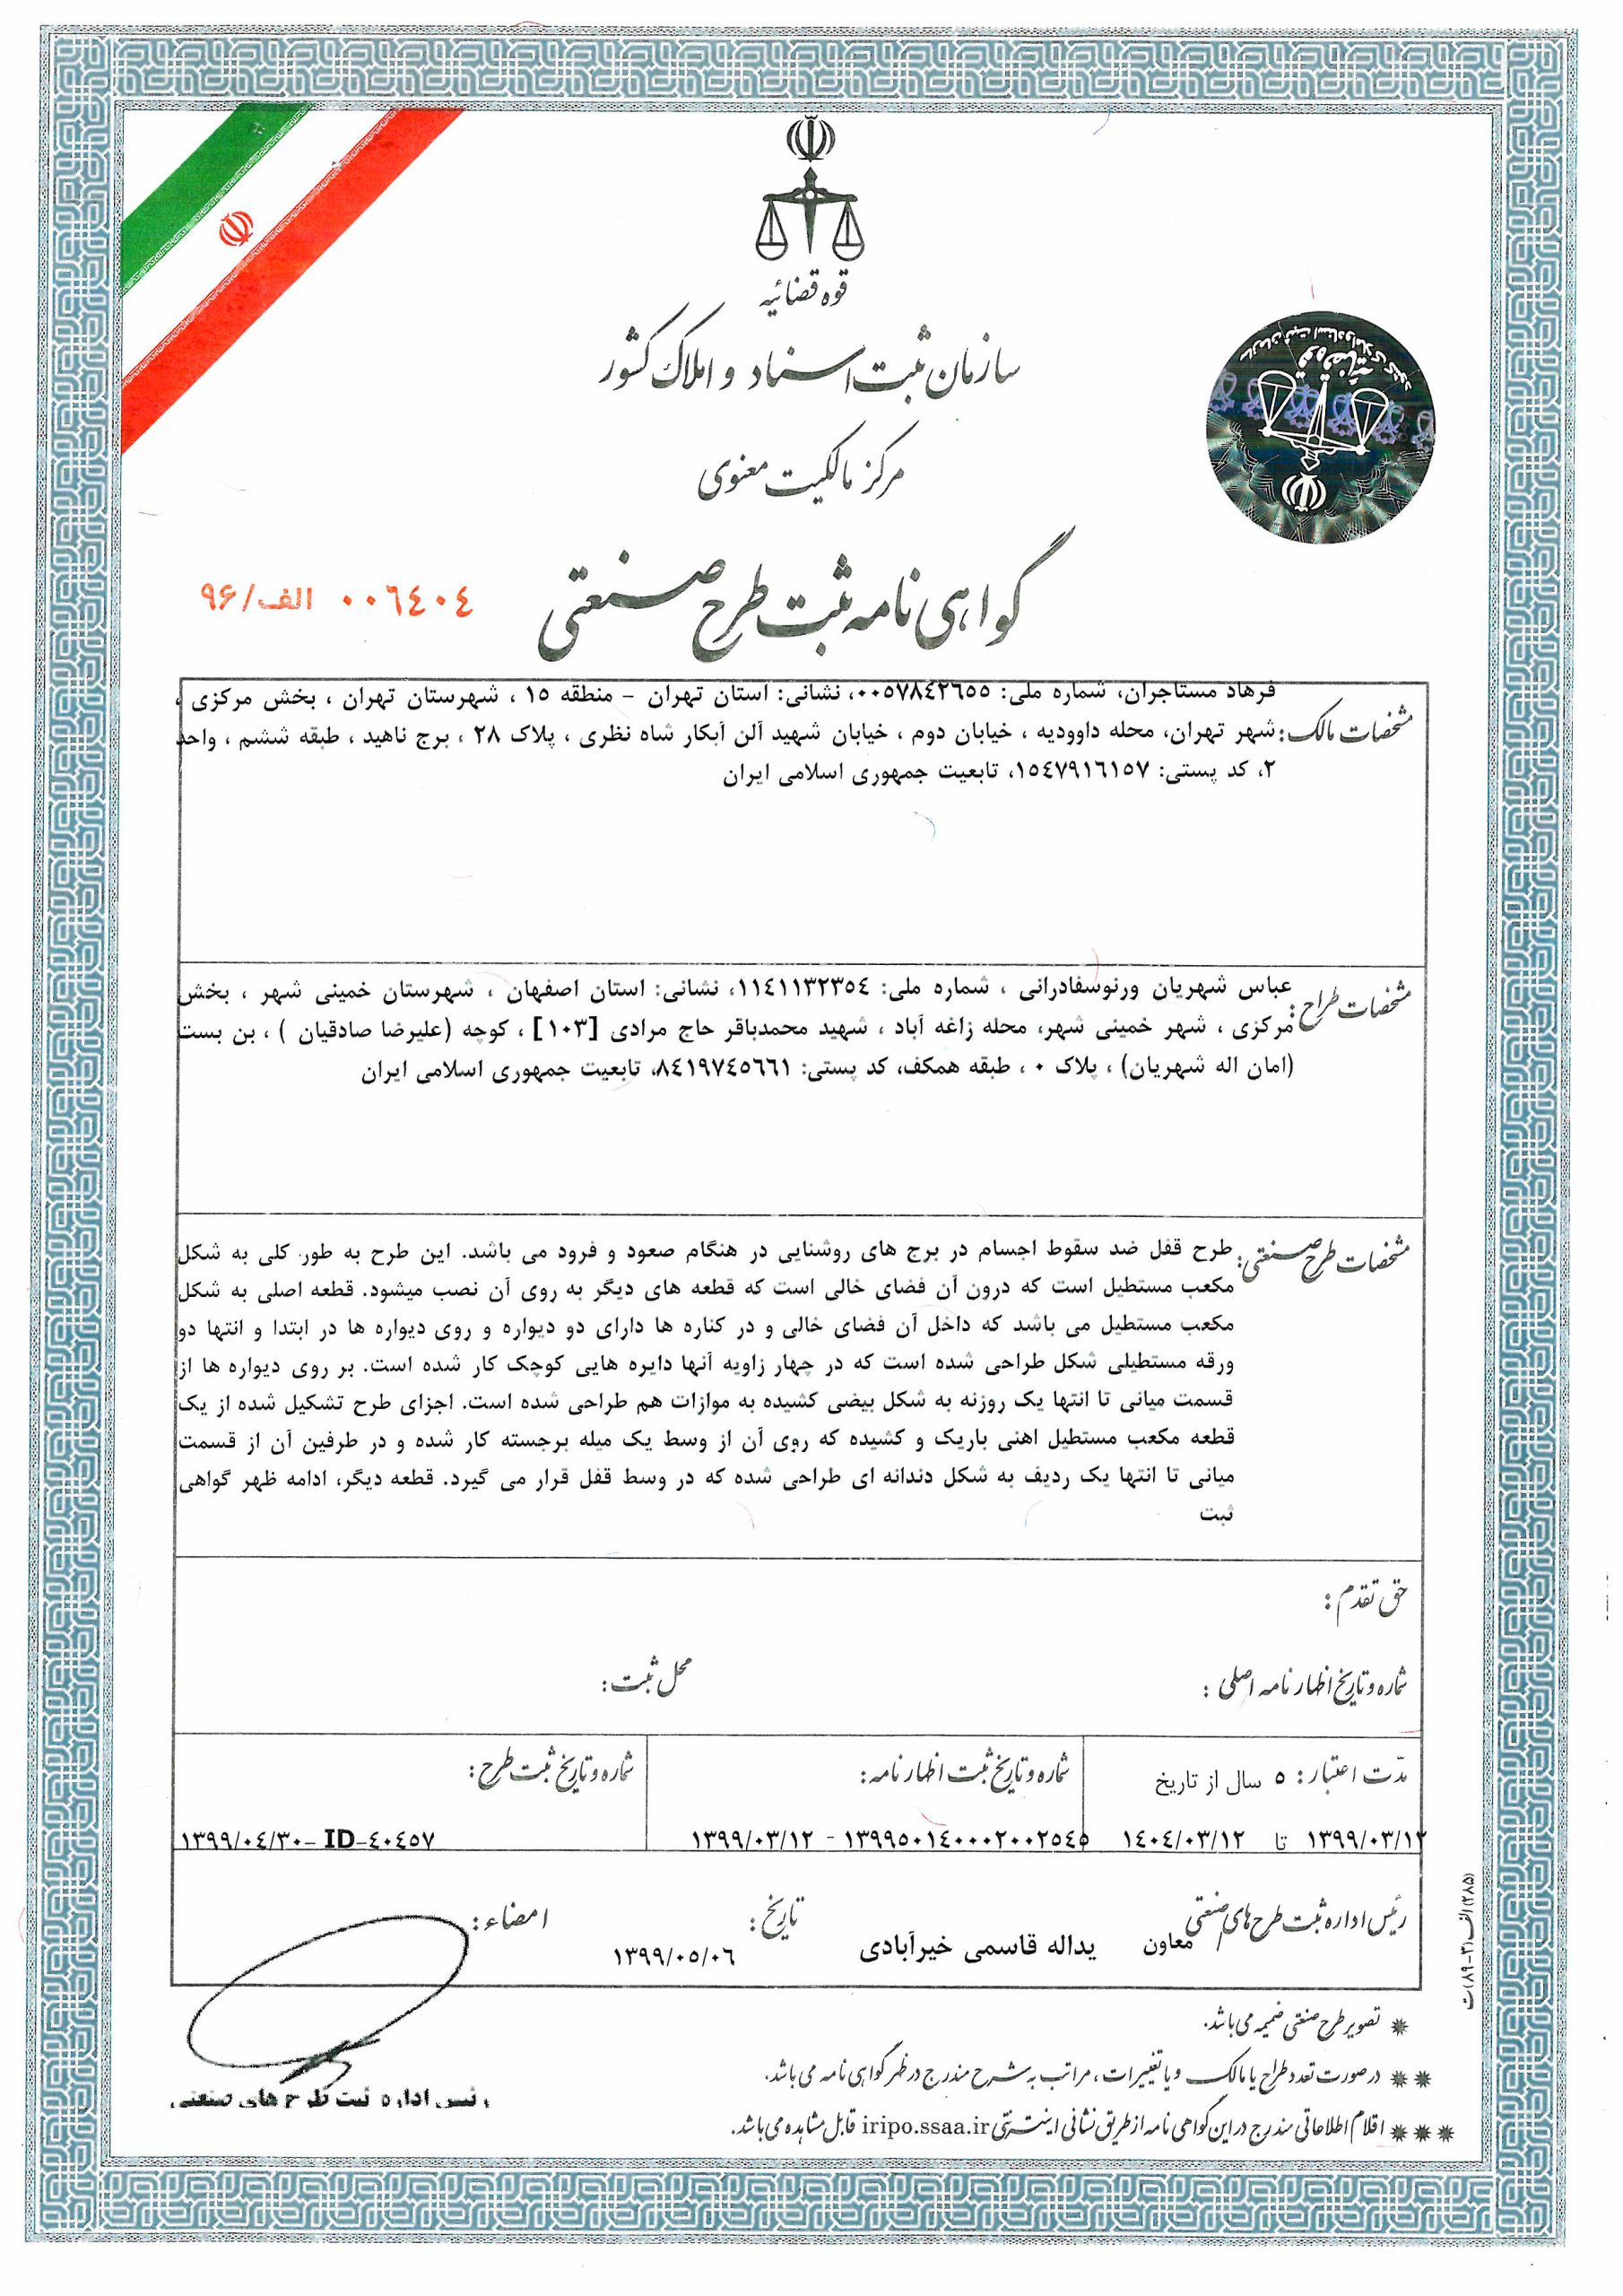 قوه قضائیه
سازمان ثبت اسناد و املاک کشور
مرکز مالکیت معنوی
گواهی نامه ثبت طرح صنعتی
٠٠٦٤٠٤ الف/۹۶
مشخصات مالک:
فرهاد مستاجران، شماره ملی: ٠٠٥٧٨٤٢٦٥٥، نشانی: استان تهران - منطقه ١٥ ، شهرستان تهران ، بخش مرکزی ،
شهر تهران، محله داوودیه ، خیابان دوم ، خیابان شهید آلن آبکار شاه نظری ، پلاک ٢٨ ، برج ناهید ، طبقه ششم ، واحد
٢، کد پستی: ١٥٤٧٩١٦١٥٧، تابعیت جمهوری اسلامی ایران
مشخصات طراح:
عباس شهریان ورنوسفادرانی ، شماره ملی: ١١٤١١٣٢٣٥٤، نشانی: استان اصفهان ، شهرستان خمینی شهر ، بخش
مرکزی ، شهر خمینی شهر، محله زاغه آباد ، شهید محمدباقر حاج مرادی [١٠٣] ، کوچه (علیرضا صادقیان ) ، بن بست
(امان اله شهریان) ، پلاک ٠ ، طبقه همکف، کد پستی: ٨٤١٩٧٤٥٦٦١، تابعیت جمهوری اسلامی ایران
مشخصات طرح صنعتی:
طرح قفل ضد سقوط اجسام در برج های روشنایی در هنگام صعود و فرود می باشد. این طرح به طور کلی به شکل
مکعب مستطیل است که درون آن فضای خالی است که قطعه های دیگر به روی آن نصب میشود. قطعه اصلی به شکل
مکعب مستطیل می باشد که داخل آن فضای خالی و در کناره ها دارای دو دیواره و روی دیواره ها در ابتدا و انتها دو
ورقه مستطیلی شکل طراحی شده است که در چهار زاویه آنها دایره هایی کوچک کار شده است. بر روی دیواره ها از
قسمت میانی تا انتها یک روزنه به شکل بیضی کشیده به موازات هم طراحی شده است. اجزای طرح تشکیل شده از یک
قطعه مکعب مستطیل اهنی باریک و کشیده که روی آن از وسط یک میله برجسته کار شده و در طرفین آن از قسمت
میانی تا انتها یک ردیف به شکل دندانه ای طراحی شده که در وسط قفل قرار می گیرد. قطعه دیگر، ادامه ظهر گواهی
ثبت
حق تقدم :
شماره و تاریخ اظهارنامه اصلی : محل ثبت:
مدّت اعتبار: ٥ سال از تاریخ
١٣٩٩/٠٣/١٢ تا ١٤٠٤/٠٣/١٢
شماره و تاریخ ثبت اظهارنامه:
١٣٩٩٥٠١٤٠٠٠٢٠٠٢٥٤٥ - ١٣٩٩/٠٣/١٢
شماره و تاریخ ثبت طرح:
١٣٩٩/٠٤/٣٠- ID-٤٠٤٥٧
رئیس اداره ثبت طرح های صنعتی
معاون / یداله قاسمی خیرآبادی
تاریخ:
١٣٩٩/٠٥/٠٦
امضاء:
رئیس اداره ثبت طرح های صنعتی
تصویر طرح صنعتی ضمیمه می باشد.
در صورت تعدد طراح یا مالک و یا تغییرات، مراتب به شرح مندرج در ظهر گواهی نامه می باشد.
اقلام اطلاعاتی مندرج در این گواهی نامه از طریق نشانی اینترنتی iripo.ssaa.ir قابل مشاهده می باشد.